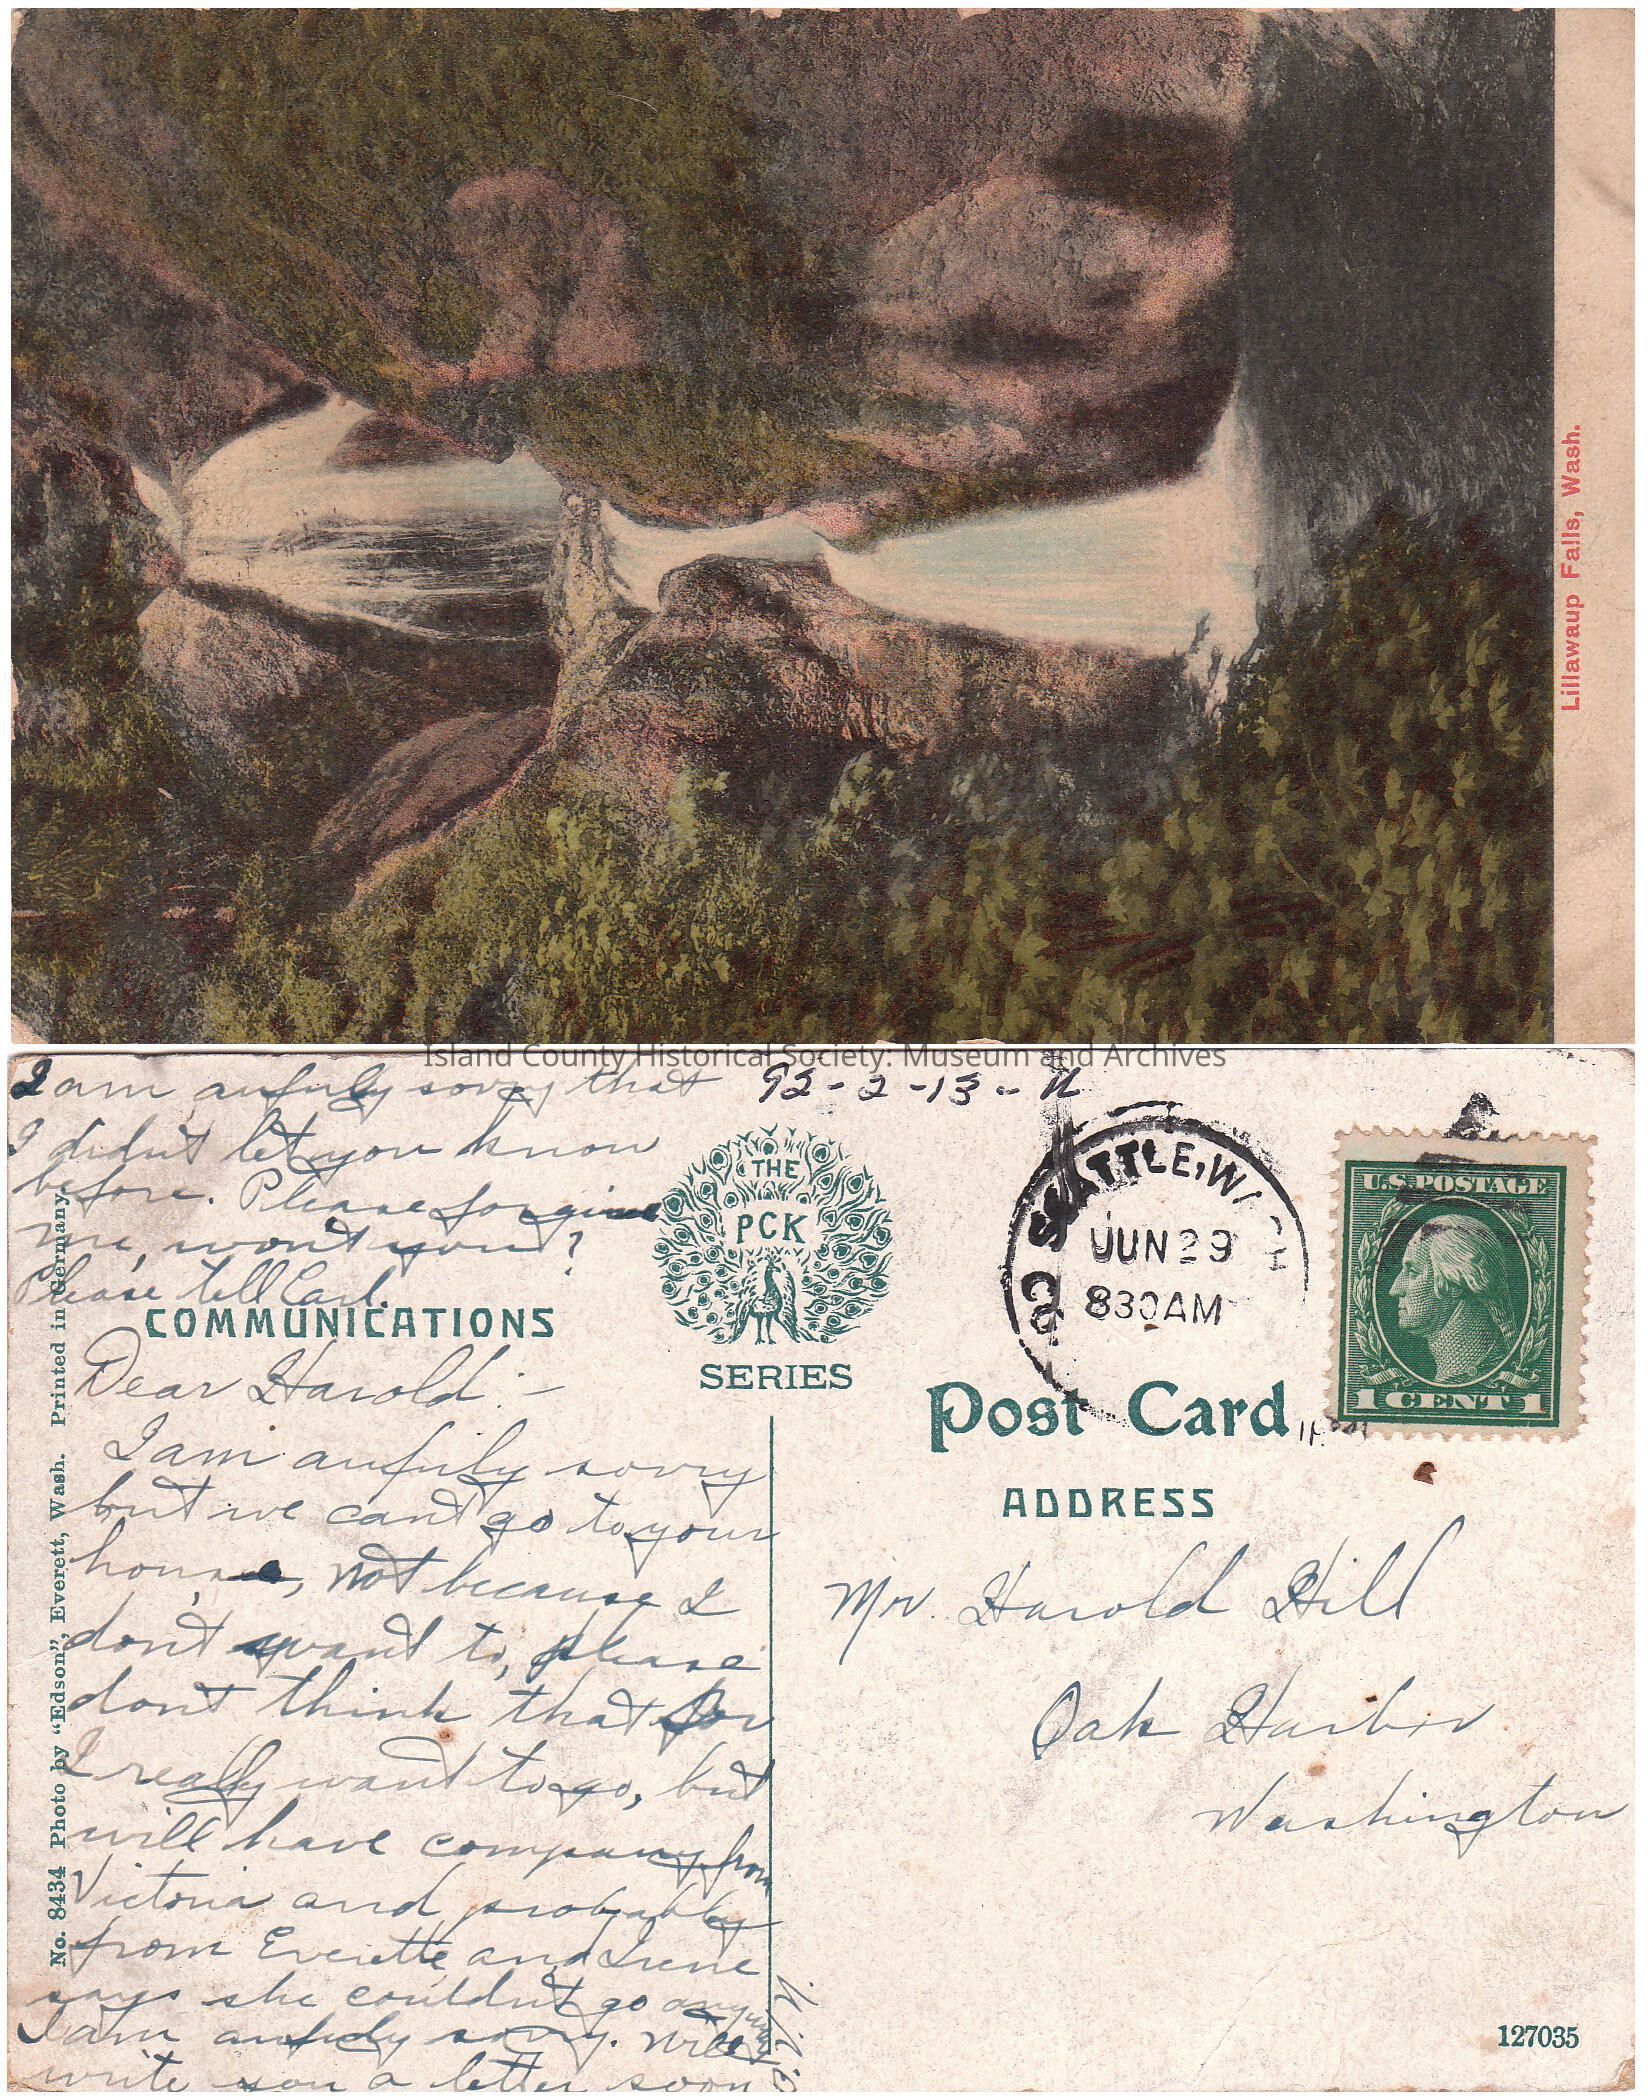 Lillawaup Falls, Wash.
Island County Historical Society: Museum and Archives
I am awfuly sorry that
I didn't let you know
before. Please forgive
me, won't you?
Please tell Carl.
92-2-13-N
THE
PCK
SERIES
SEATTLE, WASH
JUN 29
830AM
U.S. POSTAGE
1 CENT 1
COMMUNICATIONS
Post Card
ADDRESS
Dear Harold:-
I am awfuly sorry
but we can't go to your
house, not because I
don't want to, please
don't think that for
I really want to go, but
will have company from
Victoria and probably
from Everette and Irene
says she couldn't go anyway
I am awfuly sorry. Will
write you a letter soon
Mr. Harold Hill
Oak Harbor
Washington
No. 8434 Photo by "Edson", Everett, Wash. Printed in Germany
127035